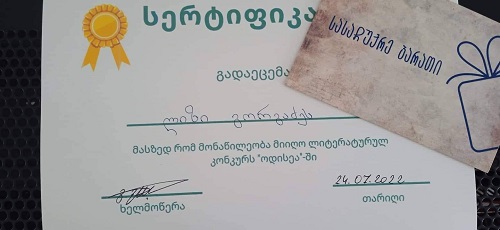 სერტიფიკა
სასაჩუქრე ბარათი
გადაეცემა
ლიზი გორგაძეს
მასზედ რომ მონაწილეობა მიიღო ლიტერატურულ
კონკურს "ოდისეა"-ში
24.07.2022
ხელმოწერა
თარიღი